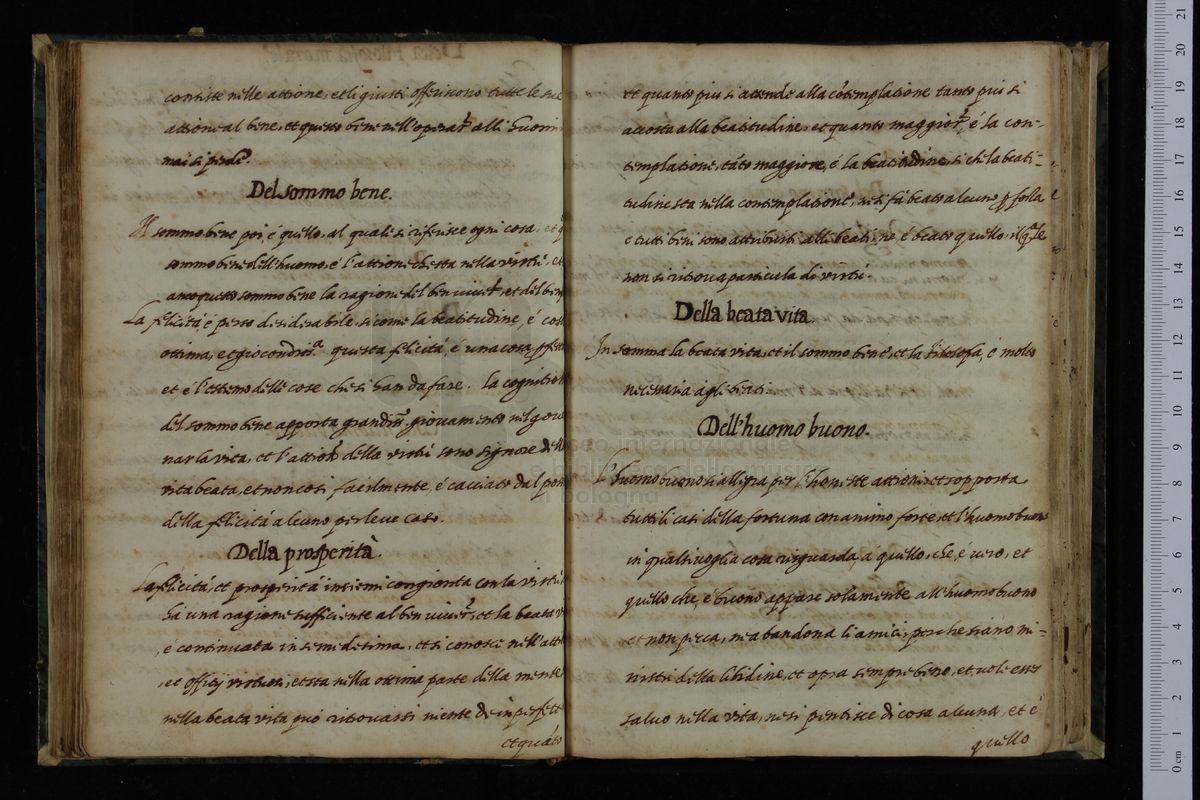 consiste nelle attione, et li giusti offeriscono tutte le sue
attione al bene, et questo bene nell'operar̃ alli huomi
mai si perde.
Del sommo bene.
Il sommo bene poi é quello, al quale si riferisce ogni cosa, et
sommo bene dell'huomo, é l'attione che sta nella virtú, et
anco questo sommo bene la ragione del ben viuer̃, et del ben
La felicitá, é perso desiderabile, si come la beatitudine, é cosa
ottima, et giocondiss.ᵃ questa felicitá, é una cosa
et é l'estremo delle cose che si han da fare. la cognition
del sommo bene apporta grandiss.º giouamento nel gouer
nar la vita, et l'attion della virtú sono signore della
vita beata, et non cosi facilmente, é cacciato dal
della felicitá alcuno per leue caso.
Della prosperità.
La felicitá, et prosperitá insieme congionta con la virtú
há una ragione sufficiente al ben viuer̃, et la beata
, é continuata in se medesima, et si conosce nell'atti
, et officij virtuosi, et sta nella ottima parte della mente
nella beata vita puó ritrouarsi niente de imperfetto
et quáto
et quanto piu si attende alla cótemplatione tanto piu si
accosta alla beatitudine, et quanto maggior̃, é la con-
templatione, táto maggiore, é la beatitudine, si che la beati-
tudine sta nella contemplatione, ne si fá beato alcuno p̱ forza
e tutti beni sono attribuiti alli beati, ne é beato quello, il q̃le
non si ritroua particula di virtú.
Della beata vita.
In somma la beata vita, et il sommo bene, et la filosofia, é molto
necessaria agli beati.
Dell'huomo buono.
L'huomo buono si allegra per l'honeste attioni, et sopporta
tutti li casi della fortuna con animo forte, et l'huomo buono
in qualsiuoglia cosa risguarda, a quello, che, é uero, et
quello che, é buono appare solamente all'huomo buono
et non pecca, ne abandona li amici, perche siano mi-
nistri della libidine, et opra sempre bene, et uole esser
saluo nella vita, ne si pentisce di cosa alcuna, et é
quello
museo internazionale
e biblioteca della musica
di bologna
0 cm 1 2 3 4 5 6 7 8 9 10 11 12 13 14 15 16 17 18 19 20 21